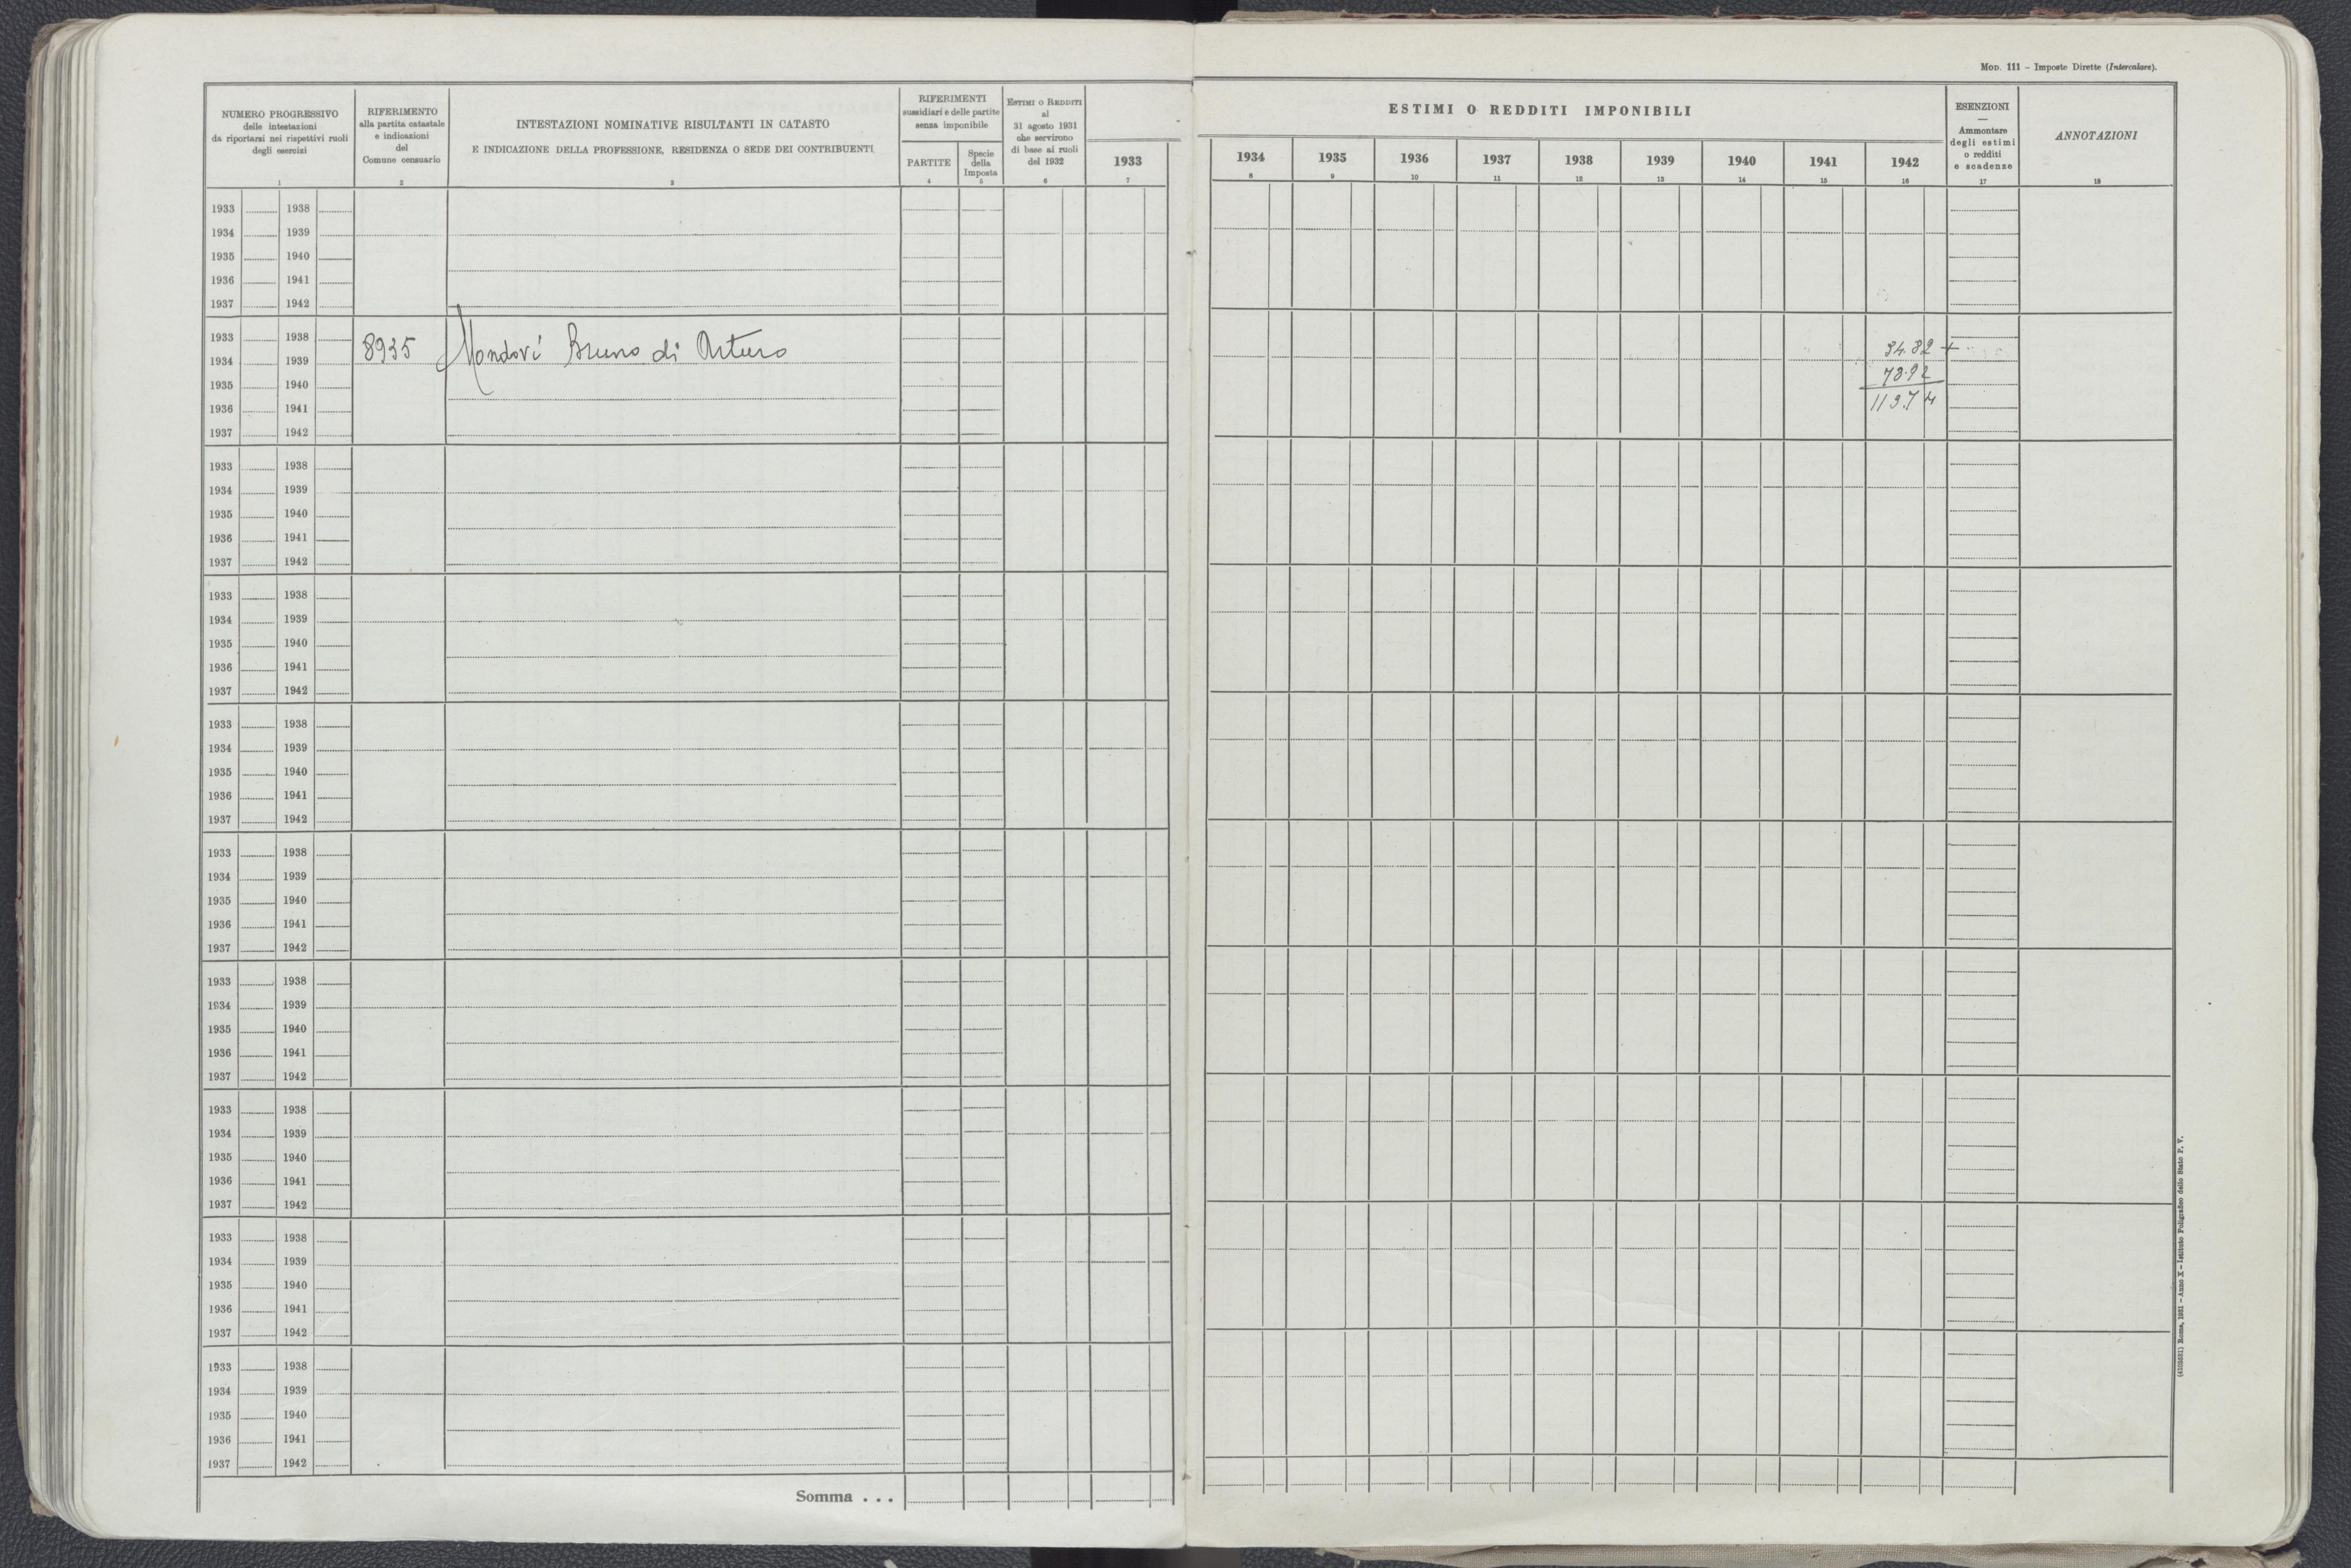 Mod. 111 – Imposte Dirette (Intercalare).
NUMERO PROGRESSIVO
delle intestazioni
da riportarsi nei rispettivi ruoli
degli esercizi
1
RIFERIMENTO
alla partita catastale
e indicazioni
del
Comune censuario
2
INTESTAZIONI NOMINATIVE RISULTANTI IN CATASTO
E INDICAZIONE DELLA PROFESSIONE, RESIDENZA O SEDE DEI CONTRIBUENTI
3
RIFERIMENTI
sussidiari e delle partite
senza imponibile
PARTITE
4
Specie
della
Imposta
5
Estimi o Redditi
al
31 agosto 1931
che servirono
di base ai ruoli
del 1932
6
ESTIMI O REDDITI IMPONIBILI
1933 1934 1935 1936 1937 1938 1939 1940 1941 1942
7 8 9 10 11 12 13 14 15 16
ESENZIONI
—
Ammontare
degli estimi
o redditi
e scadenze
17
ANNOTAZIONI
18
1933 1938
1934 1939
1935 1940
1936 1941
1937 1942
1933 1938
8935 Mondovi Bruno di Arturo
34.82 +
1934 1939
78.92
1935 1940
113.74
1936 1941
1937 1942
1933 1938
1934 1939
1935 1940
1936 1941
1937 1942
1933 1938
1934 1939
1935 1940
1936 1941
1937 1942
1933 1938
1934 1939
1935 1940
1936 1941
1937 1942
1933 1938
1934 1939
1935 1940
1936 1941
1937 1942
1933 1938
1934 1939
1935 1940
1936 1941
1937 1942
1933 1938
1934 1939
1935 1940
1936 1941
1937 1942
1933 1938
1934 1939
1935 1940
1936 1941
1937 1942
1933 1938
1934 1939
1935 1940
1936 1941
1937 1942
Somma . . .
Roma, 1931 – Anno X – Istituto Poligrafico dello Stato P. V.